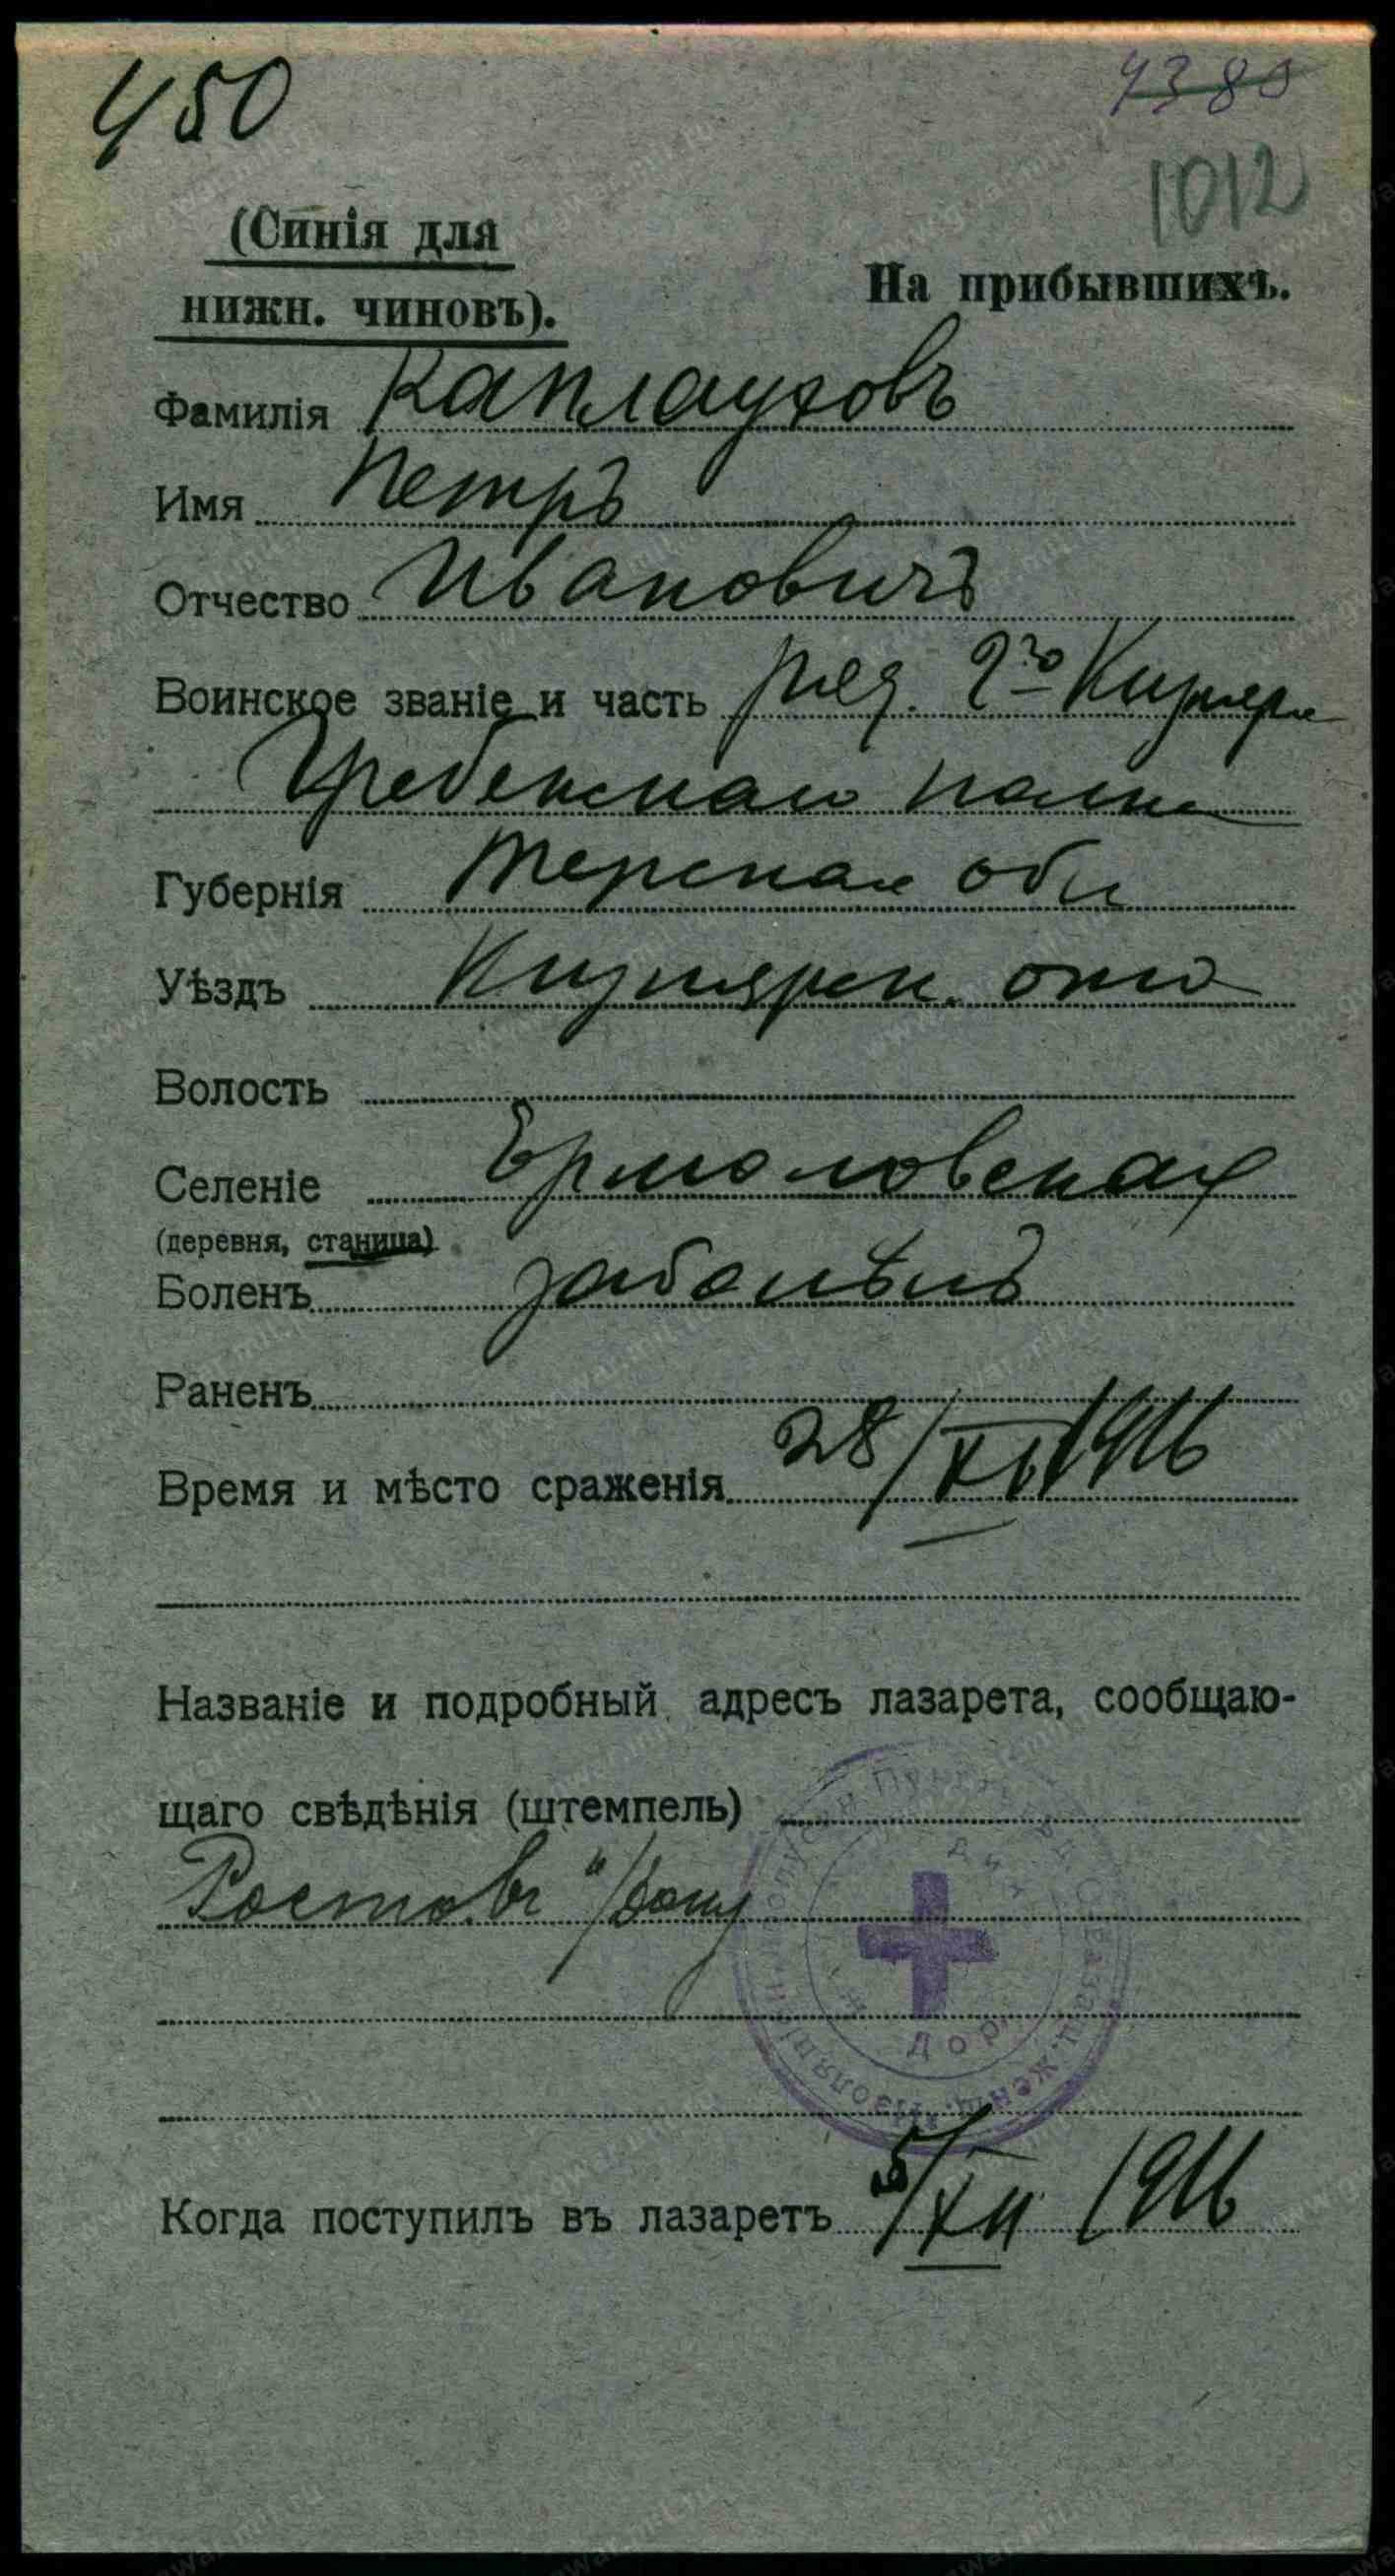 450
4380
1012
(Синія для
нижн. чиновъ).
На прибывшихъ.
Фамилія Каплауховъ
Имя Петръ
Отчество Ивановичъ
Воинское званіе и часть ряд. 2го Кизляро
Гребенскаго полка
Губернія Терская обл
Уѣздъ Кизлярск. отд
Волость
Селеніе Ермоловская
(деревня, станица)
Боленъ заболѣлъ
Раненъ
Время и мѣсто сраженія 28/XI 1916
Названіе и подробный адресъ лазарета, сообщаю-
щаго свѣдѣнія (штемпель)
Ростовъ н/Дону
Дор
Когда поступилъ въ лазаретъ 5/XII 1916